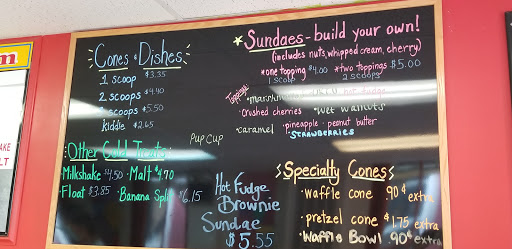 Cones & Dishes
1 scoop $3.35
2 scoops $4.40
3 scoops $5.50
kiddie $2.65
*Sundaes - build your own!
(includes nuts, whipped cream, cherry)
*one topping $4.00 *two toppings $5.00
1 scoop 2 scoops
Toppings:
•marshmallow hot fudge
•crushed cherries •wet walnuts
•caramel •pineapple •peanut butter
STRAWBERRIES
Pup Cup
Other Cold Treats:
Milkshake $4.50 •Malt $4.70
•Float $3.85 •Banana Split $6.15
Hot Fudge
Brownie
Sundae
$5.55
Specialty Cones
•waffle cone 90¢ extra
•pretzel cone $1.75 extra
•Waffle Bowl 90¢ extra
AKE
LT